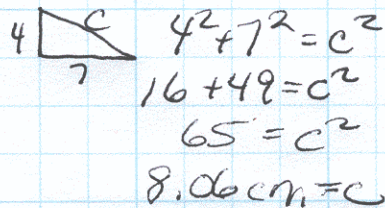 4 c 4² + 7² = c²
7
16 + 49 = c²
65 = c²
8.06 cm = c